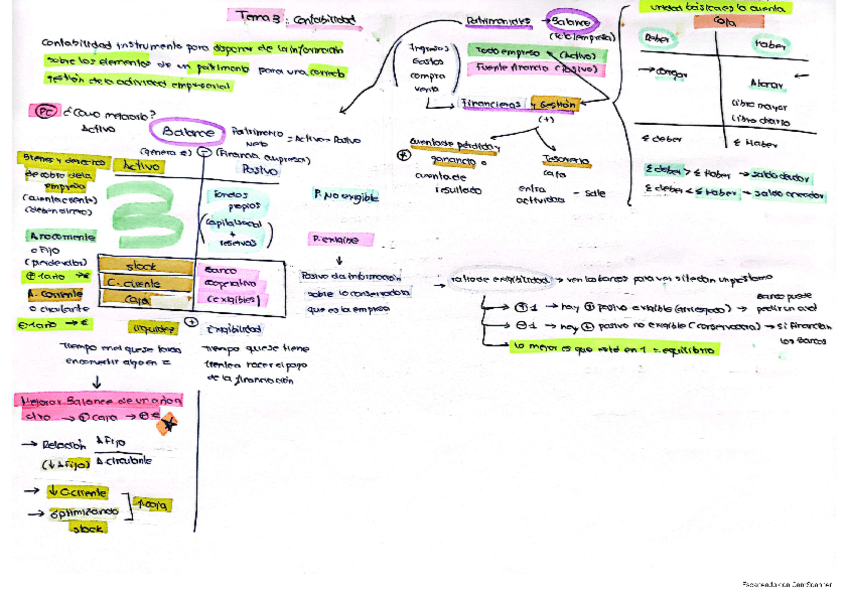 Tema 3: Contabilidad
Contabilidad instrumento para disponer de la información
sobre los elementos de un patrimonio para una correcta
gestión de la actividad empresarial
PC ¿Cómo mejorarlo?
Activo
Balance
Patrimonio neto = Activo - Pasivo
(genera €)
(Financia empresas)
Bienes y derechos
de cobro de la
empresa
(cuenta cliente)
(deben dinero)
A. no corriente
o Fijo
+1 año → €
A. corriente
o circulante
-1 año → €
Activo
Pasivo
Fondos
propios
(capital social
+
reservas)
P. No exigible
stock
C. cliente
caja
Banco
cooperativa
(exigibles)
P. exigible
Pasivo da información
sobre lo conservadora
que es la empresa
liquidez
Exigibilidad
Tiempo en el que se tarda
en convertir algo en €
Tiempo que se tiene
frente a hacer el pago
de la financiación
Mejorar Balance de un año a
otro → + caja → + €
→ Relación A Fijo
A circulante
(↓ A Fijo)
→ ↓ C. cliente
→ optimizando
stock
↑ caja
Patrimoniales → Balance
(tele empresa)
Ingresos
Gastos
compra
venta
Todo empresa (Activo)
Fuente financia (Pasivo)
Financieras y Gestión
(+)
cuenta de pérdidas y
ganancia o
cuenta de
resultado
Tesorería
caja
entra - sale
actividades
unidad básica es la cuenta
caja
Deber
Haber
→ cargar
Abonar
Libro mayor
Libro diario
Σ deber
Σ Haber
Σ deber > Σ Haber → saldo deudor
Σ deber < Σ Haber → saldo acreedor
→ ratio de exigibilidad → ven los bancos para ver si te dan un préstamo
+ 1 → hay + pasivo exigible (arriesgado) → Banco puede
pedir un aval
- 1 → hay + pasivo no exigible (conservadora) → si financian
los bancos
lo mejor es que esté en 1 = equilibrio
Escaneado con CamScanner